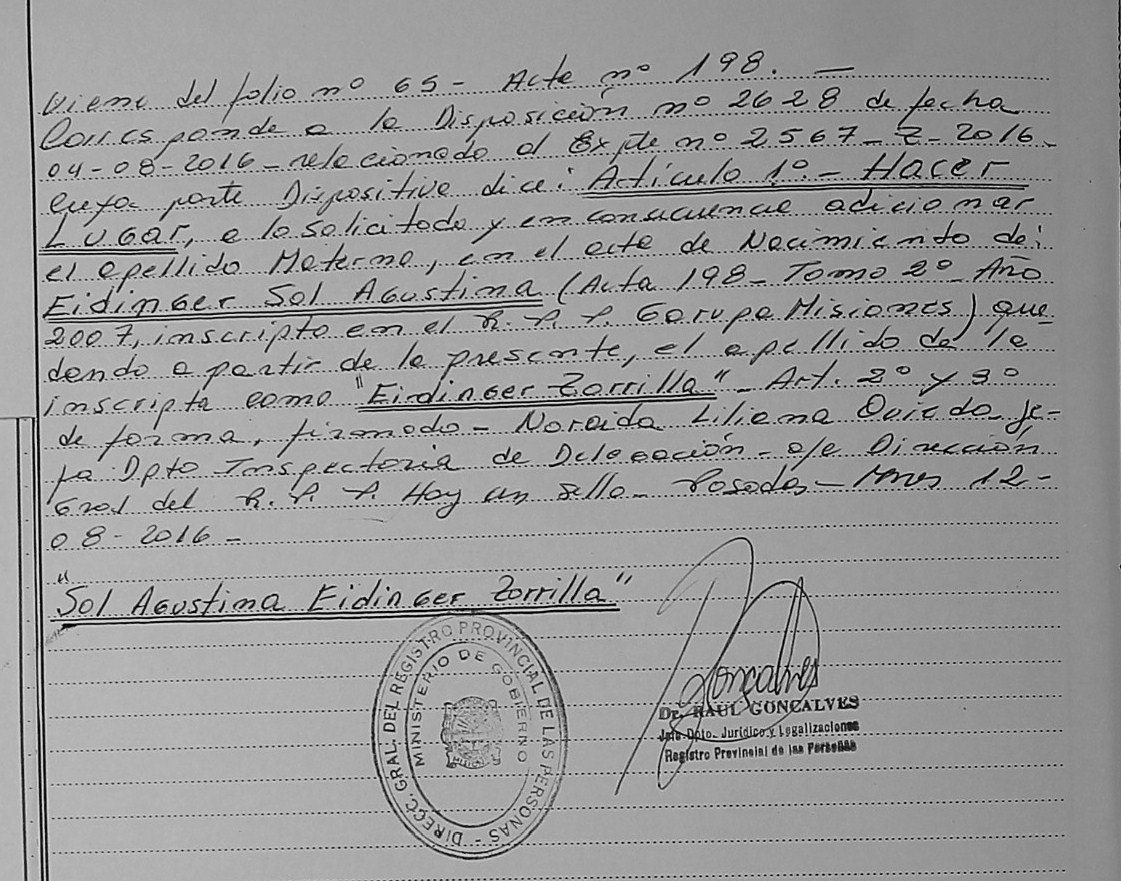 Viene del folio nº 65 - Acta nº 198. —
Corresponde a la Disposición nº 2628 de fecha
04-08-2016 - relacionado al Expte nº 2567-Z-2016-
cuya parte Dispositiva dice: Artículo 1º.- Hacer
Lugar, a lo solicitado y en consecuencia adicionar
el apellido Materno, en el acta de Nacimiento de:
Eidinger Sol Agustina (Acta 198 - Tomo 2º Año
2007, inscripto en el R. P. P. Garupa Misiones) que-
dando a partir de la presente, el apellido de la
inscripta como "Eidinger Zorrilla" - Art. 2º y 3º
de forma, firmado - Noraida Liliana Oviedo Je-
fa Dpto Inspectoria de Delegación - a/c Dirección
Gral del R. P. P. Hay un sello - Posadas - Mnes 12-
08-2016 -
"Sol Agustina Eidinger Zorrilla"
DIREC. GRAL. DEL REGISTRO PROVINCIAL DE LAS PERSONAS -
MINISTERIO DE GOBIERNO
Gonçalves
Dr. RAUL GONCALVES
Jefe Dpto. Jurídico y Legalizaciones
Registro Provincial de las Personas